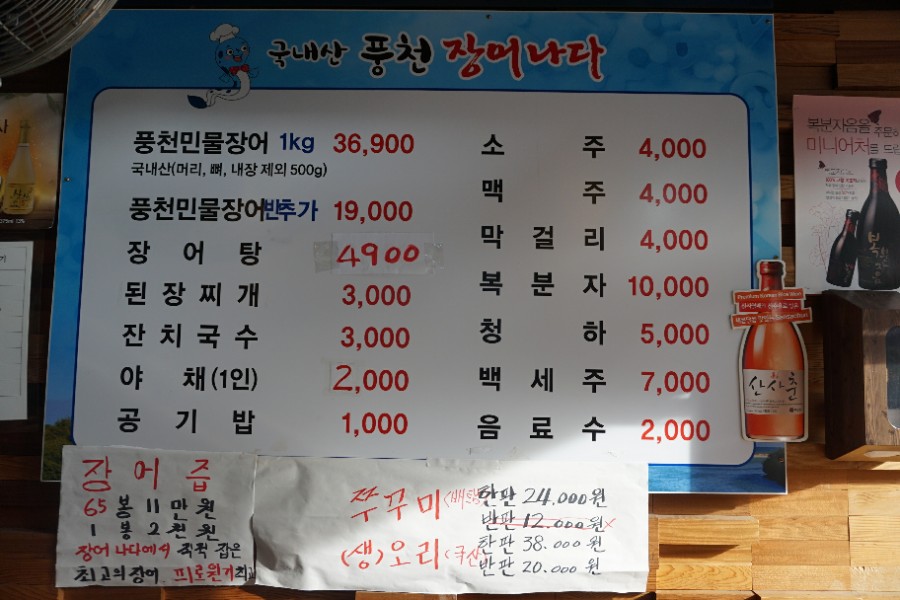 국내산 풍천 장어나다
풍천민물장어 1kg 36,900
국내산(머리, 뼈, 내장 제외 500g)
풍천민물장어반추가 19,000
장어탕 4900
된장찌개 3,000
잔치국수 3,000
야채(1인) 2,000
공기밥 1,000
소주 4,000
맥주 4,000
막걸리 4,000
복분자 10,000
청하 5,000
백세주 7,000
음료수 2,000
장어즙
65봉 11만원
1봉 2천원
장어나다에서 직접 잡은
최고의장어 피로원기회
쭈꾸미 한판 24.000원
반판 12.000원 x
(생)오리 (국산) 한판 38.000원
반판 20.000원
복분자음을 주문하
미니어처를 드립
산사춘